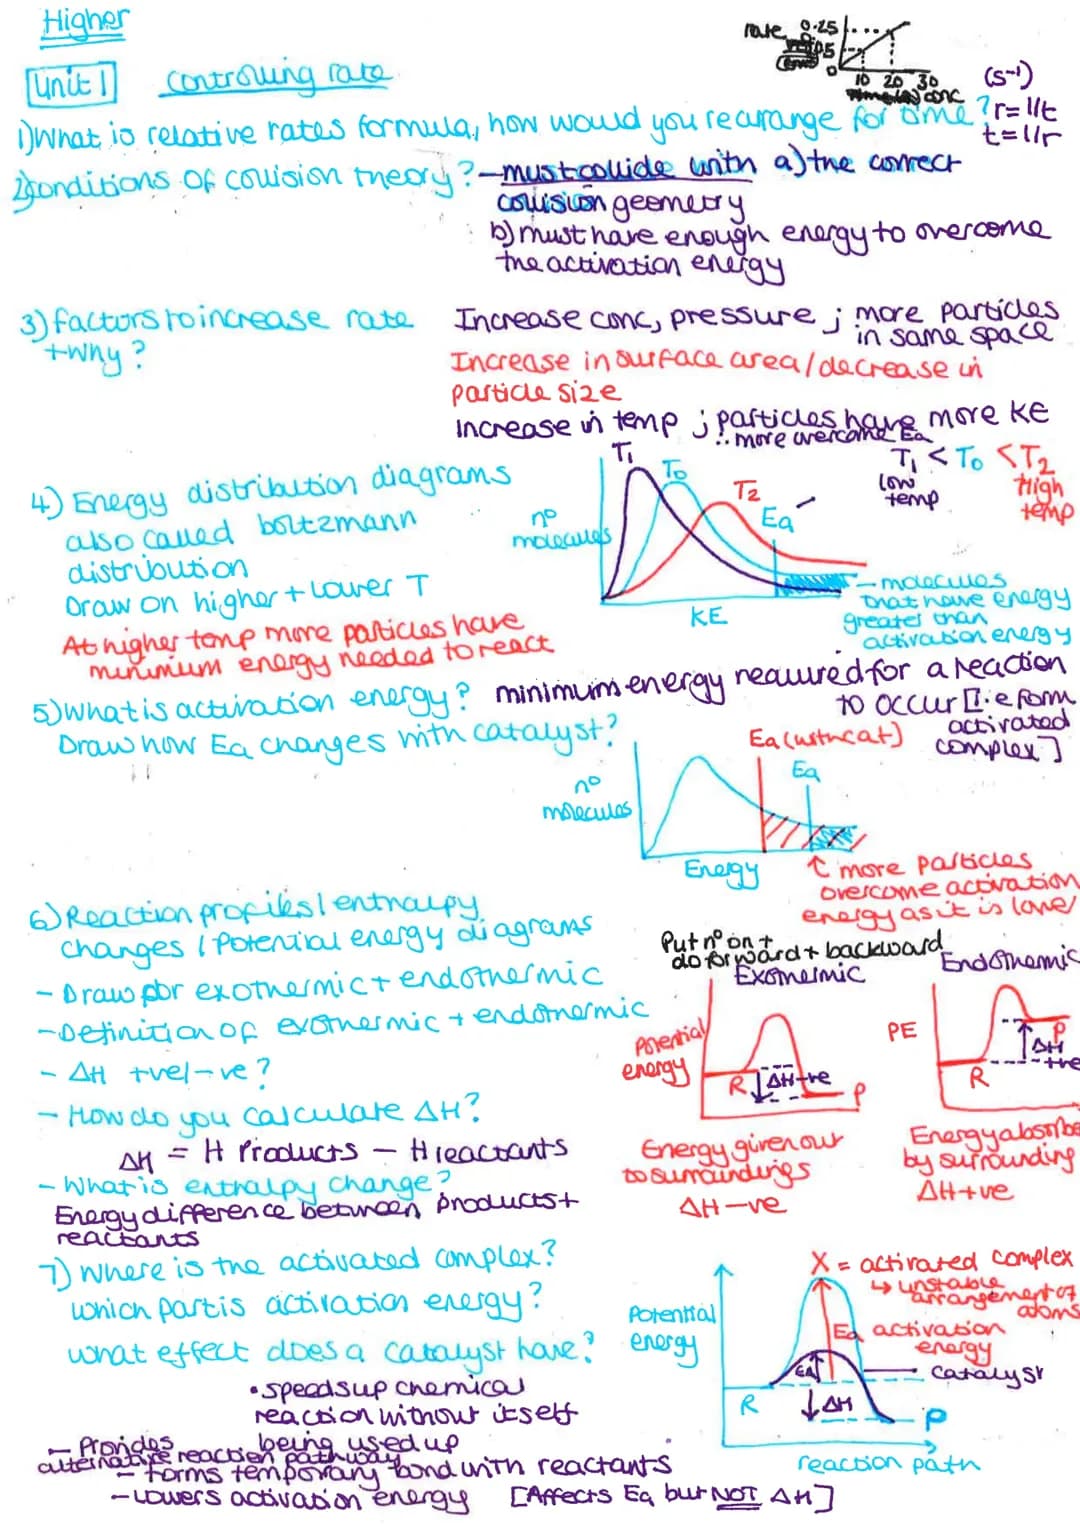 Higher
Unit 1 Controlling rate
rate 0.25
0
10 20 30
conc
(s⁻¹)
1) What is relative rates formula, how would you rearrange for time? r=1/t
t=1/r
2) Conditions of collision theory? – must collide with a) the correct
collision geometry
b) must have enough energy to overcome
the activation energy
3) factors to increase rate
+ why?
Increase conc, pressure ; more particles
in same space
Increase in surface area / decrease in
particle size
Increase in temp ; particles have more KE
∴ more overcome Ea
4) Energy distribution diagrams
also called boltzmann
distribution
Draw on higher + lower T
At higher temp more particles have
minimum energy needed to react
T₁ T₀ T₂ Ea
T₁ < T₀ < T₂
low temp
High temp
nº molecules
KE
– molecules
that have energy
greater than
activation energy
5) What is activation energy? minimum energy required for a reaction
to occur [i.e form
activated
complex]
Draw how Ea changes with catalyst?
Ea (with cat)
Ea
nº molecules
Energy
↑ more particles
overcome activation
energy as it is lower
6) Reaction profiles / enthalpy
changes / Potential energy diagrams
- Draw for exothermic + endothermic
- Definition of exothermic + endothermic
- ΔH +ve/-ve?
- How do you calculate ΔH?
ΔH = H Products – H reactants
- What is enthalpy change?
Energy difference between products +
reactants
Put nº on +
do forward + backward
Exothermic
Potential energy
R ΔH-ve P
Energy given out
to surroundings
ΔH -ve
Endothermic
PE
R P ΔH +ve
Energy absorbe
by surrounding
ΔH +ve
7) Where is the activated complex?
which part is activation energy?
what effect does a catalyst have?
• speeds up chemical
reaction without itself
being used up
– Provides
alternative reaction pathway
– forms temporary bond with reactants
– Lowers activation energy [Affects Ea but NOT ΔH]
X = activated complex
↳ unstable
arrangement of
atoms
Potential energy
Ea activation
energy
Ea
catalyst
R ΔH P
reaction path